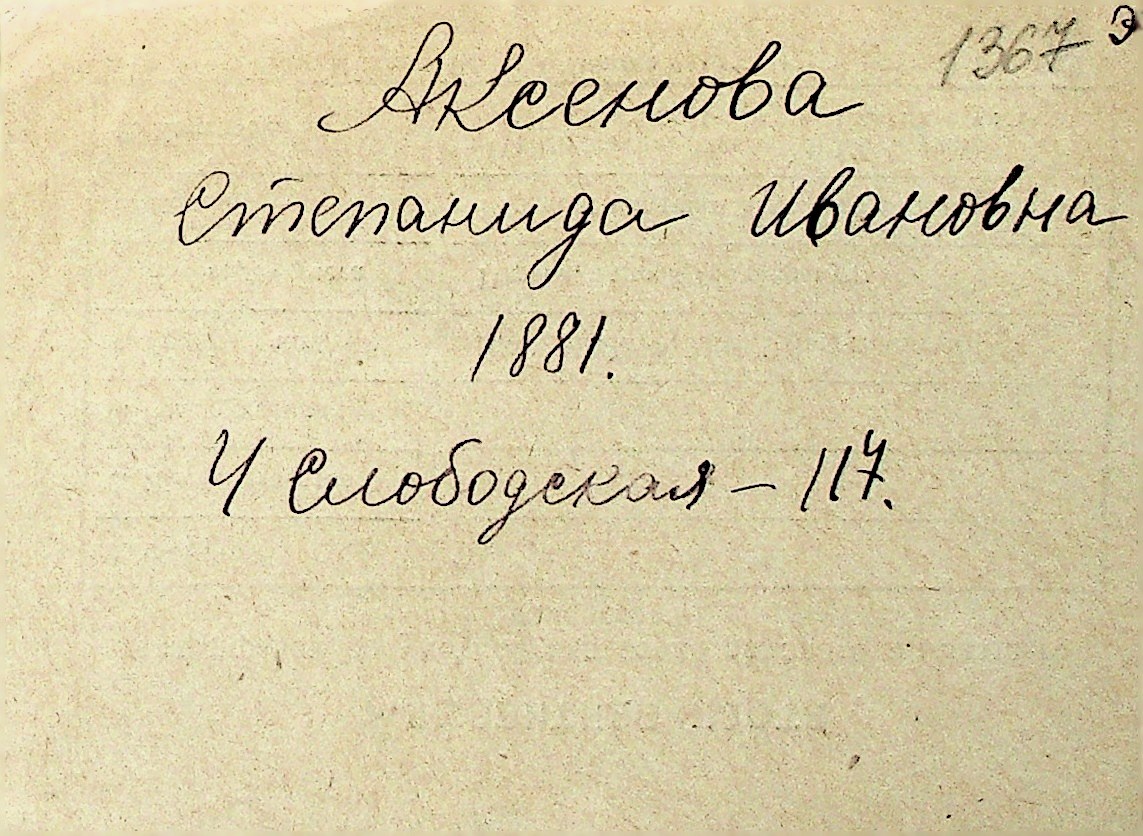 1367 Э
Аксенова
Степанида Ивановна
1881.
4 Слободская – 117.